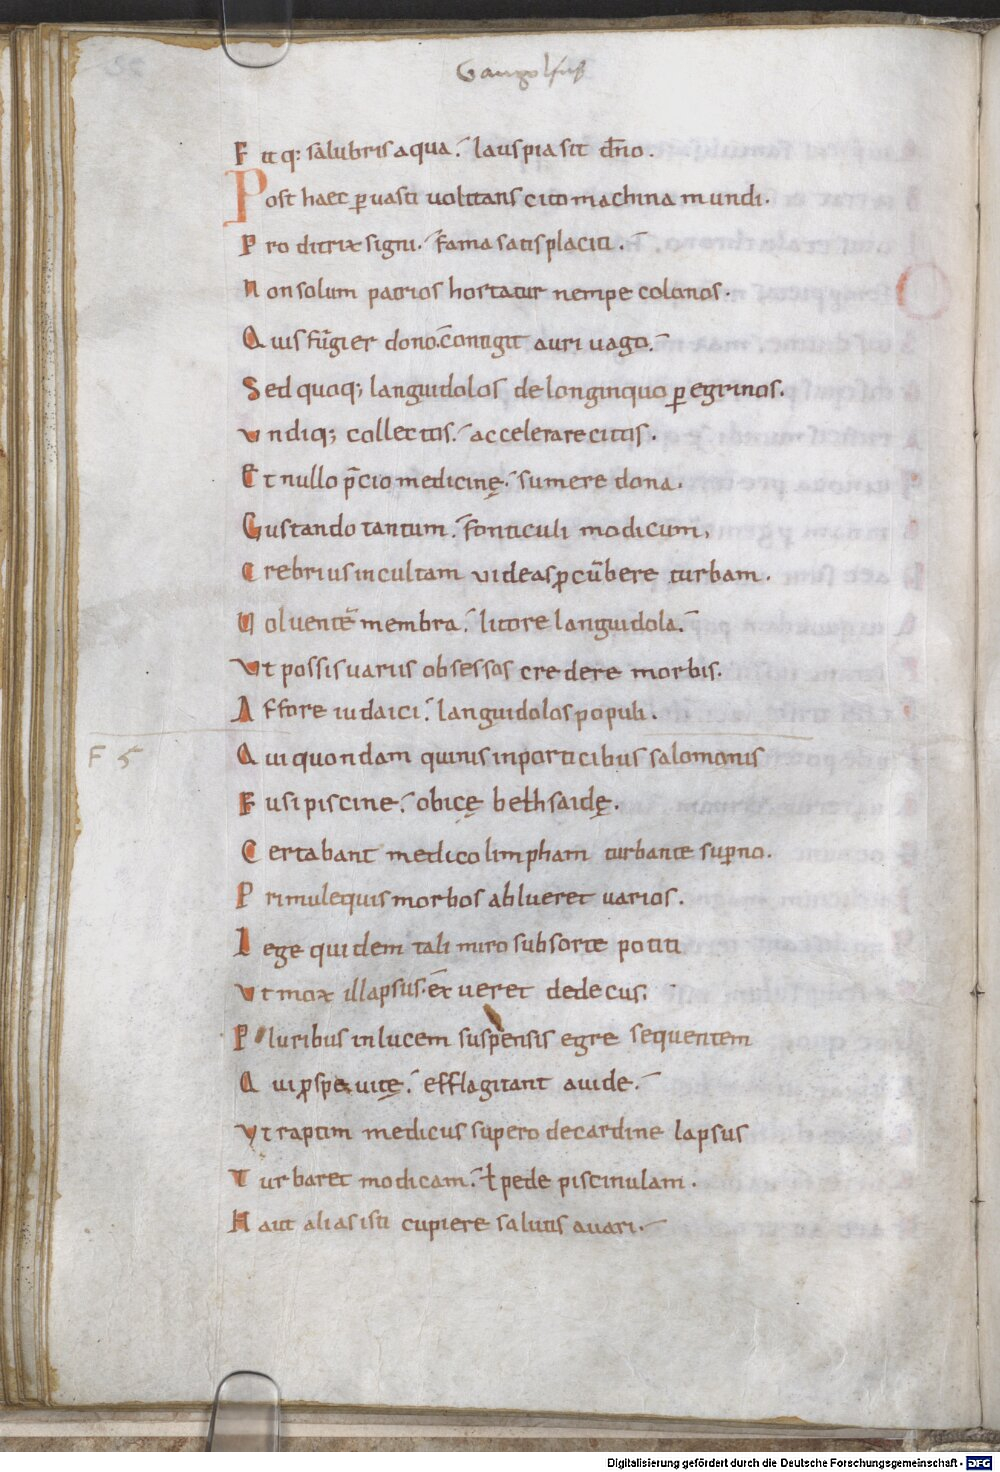 Gangolfus
Fitq: salubris aqua. laus pia sit dn̄o.
Post haec ꝑ uasti uolitans cito machina mundi.
Proditrix signi. fama satis placiti.
Non solum patrios hortatur nempe colonos.
Quis fūgier dono. contigit auri uago.
Sed quoq; languidolos de longinquo ꝑegrinos.
Vndiq; collectos. accelerare citos.
Et nullo p̄cio medicinę. sumere dona.
Gustando tantum. fonticuli modicum,
Crebrius incultam uideas ꝓcūbere turbam.
Voluentē membra. litore languidola.
Vt possis uariis obsessos credere morbis.
Affore iudaici. languidolos populi.
F 5
Qui quondam quinis in porticibus salomonis
Fusi piscine. obicę bethsaidę.
Certabant medico limpham turbante suꝑno.
Primule quis morbos ablueret uarios.
Lege quidem tali miro sub sorte potiti
Vt mox illapsus. exueret dedecus.
Pluribus in lucem suspensis egre sequentem
Qui ꝓspe uitę. efflagitant auide.
Vt raptim medicus supero de cardine lapsus
Turbaret modicam. ł pede piscinulam.
Haut alias isti cupiere salutis auari.
Digitalisierung gefördert durch die Deutsche Forschungsgemeinschaft - DFG